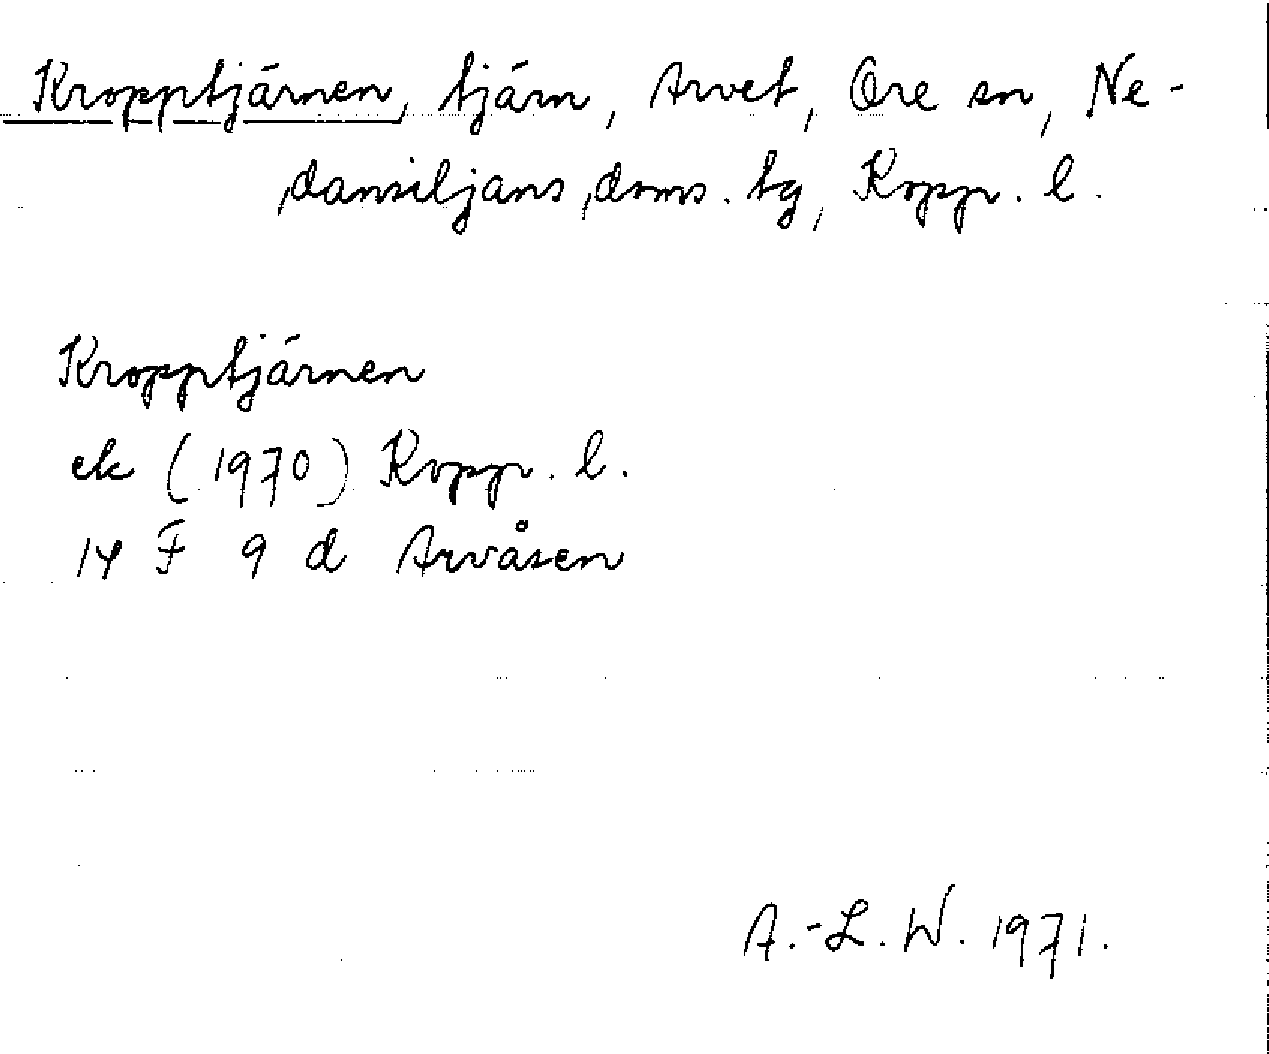 Kropptjärnen, tjärn, Arvet, Ore sn, Ne-
dansiljans doms. tg, Kopp. l.
Kropptjärnen
ek (1970) Kopp. l.
14 F 9 d Arvåsen
A.-L. W. 1971.